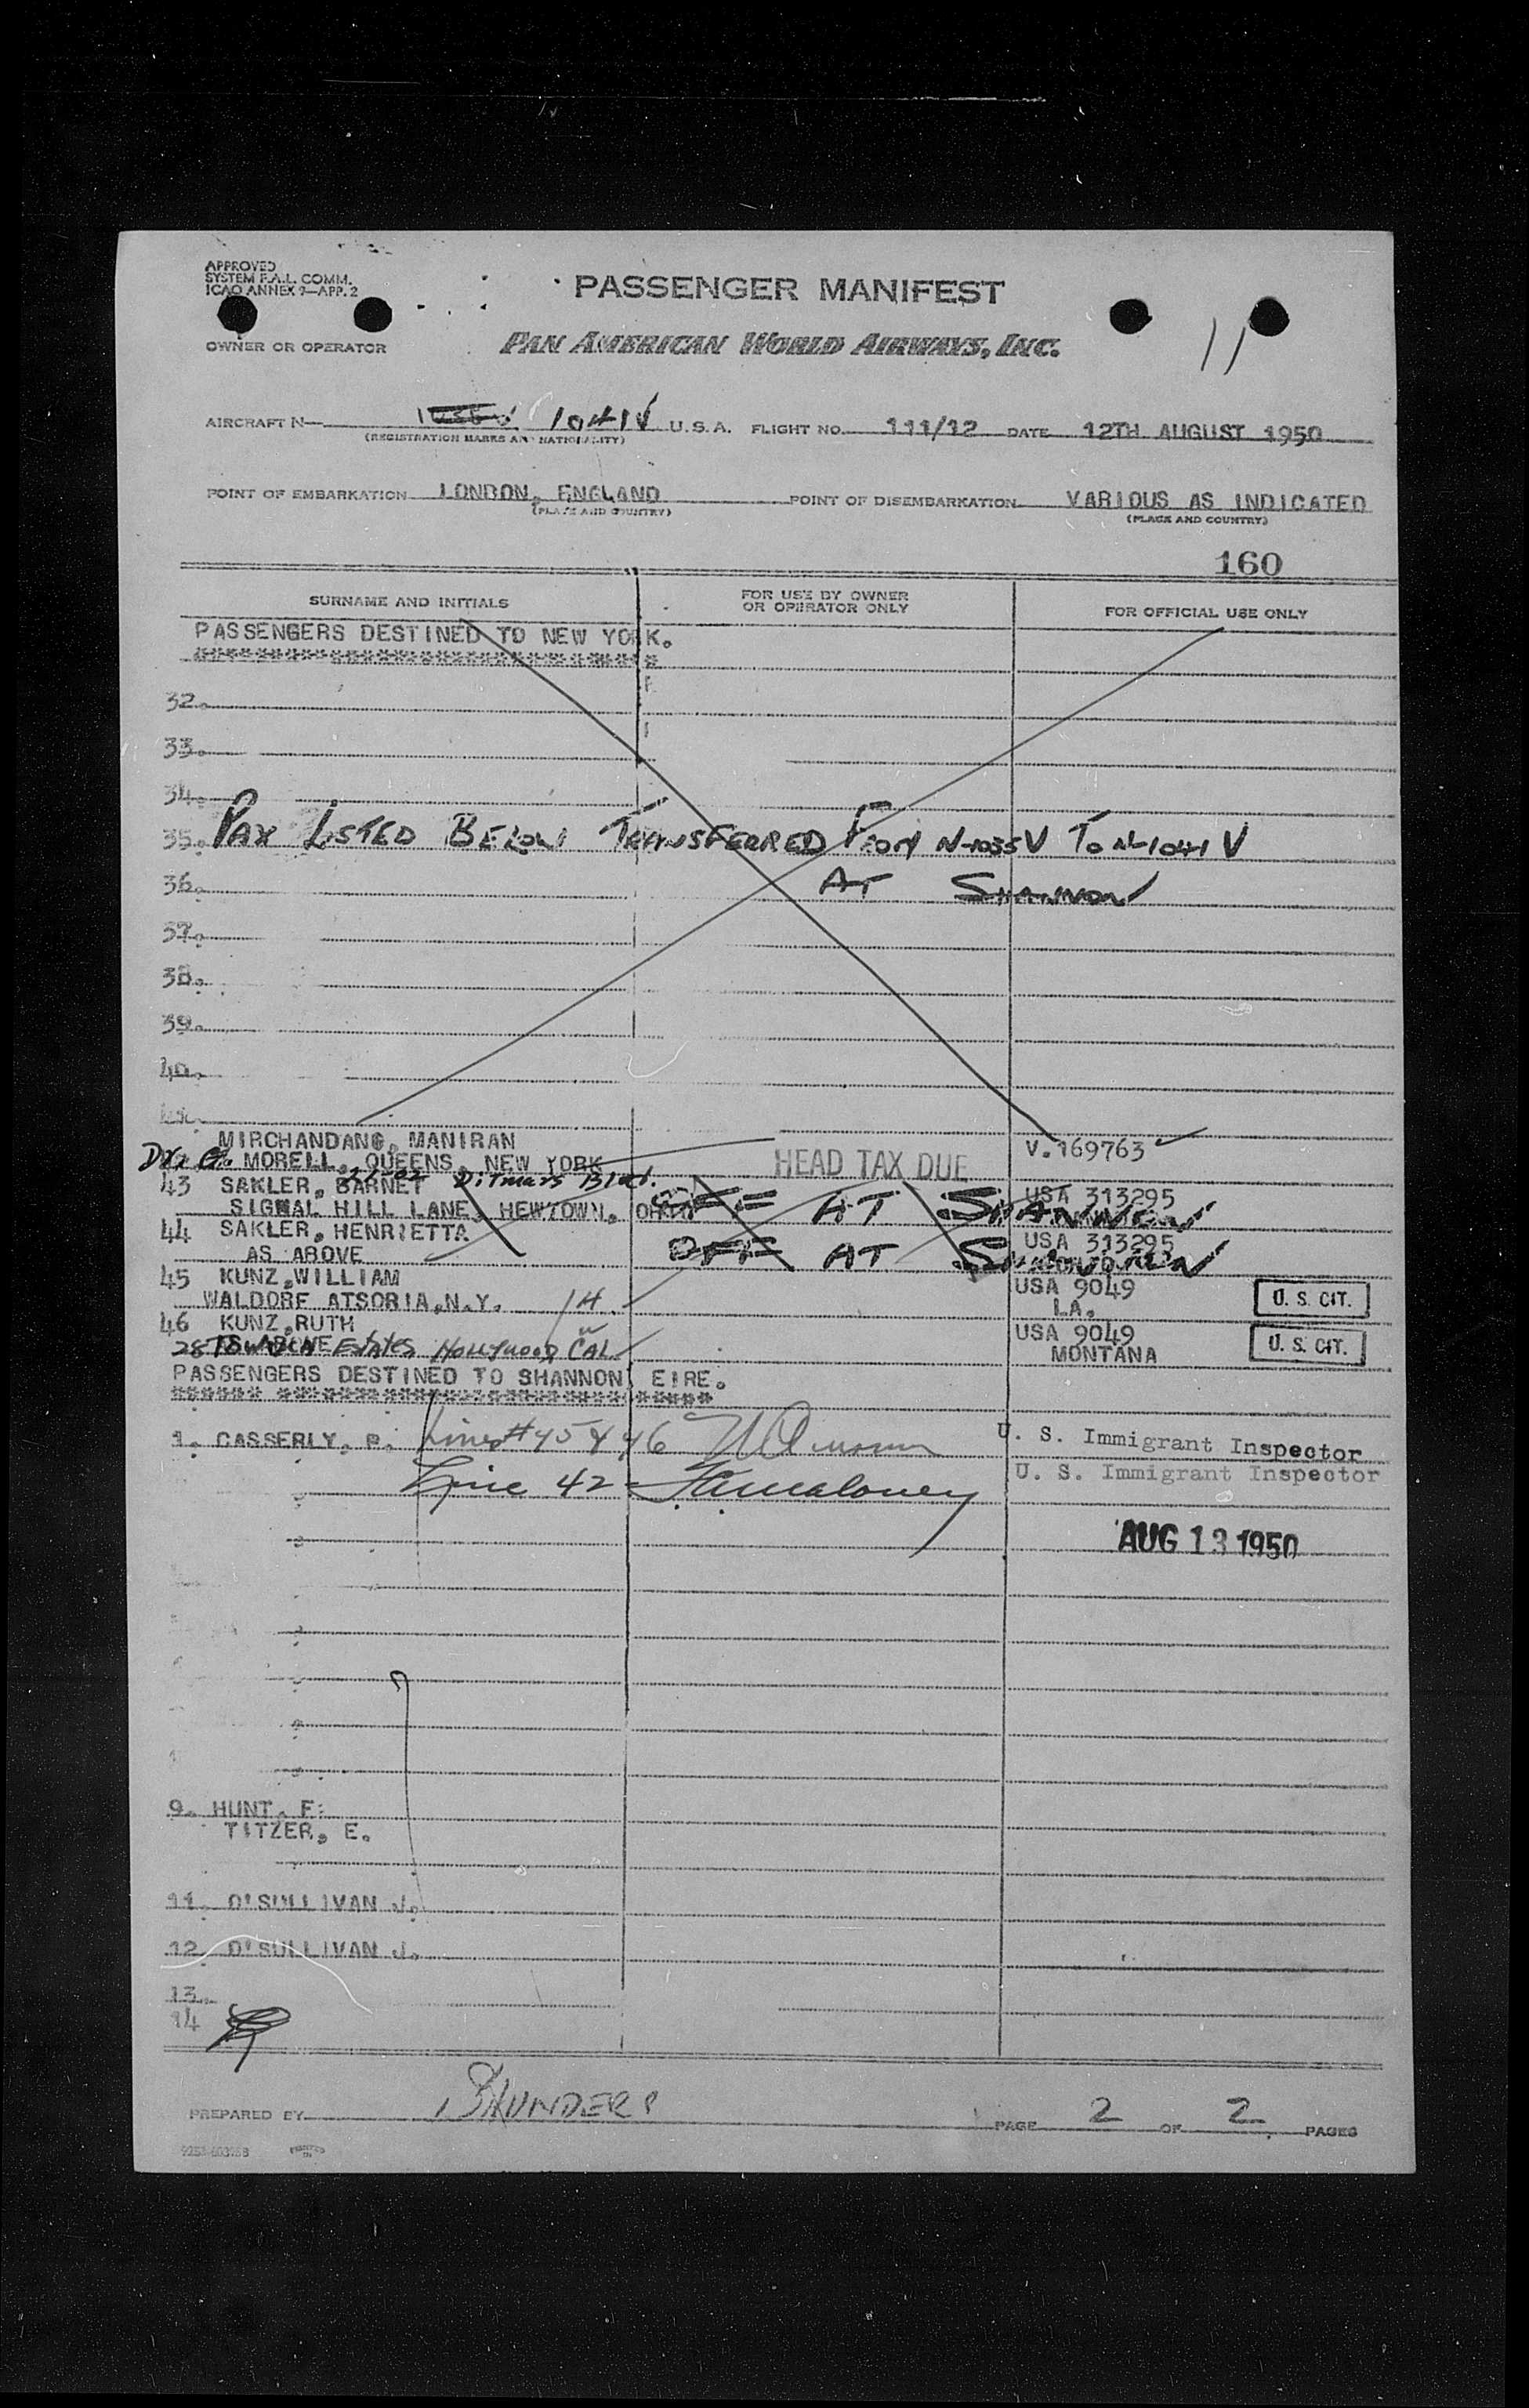 APPROVED
SYSTEM F.A.L. COMM.
ICAO ANNEX 9—APP. 2
PASSENGER MANIFEST
11
OWNER OR OPERATOR
PAN AMERICAN WORLD AIRWAYS, INC.
AIRCRAFT N— 1041V U.S.A. FLIGHT NO. 111/12 DATE 12TH AUGUST 1950
(REGISTRATION MARKS AND NATIONALITY)
POINT OF EMBARKATION LONDON, ENGLAND POINT OF DISEMBARKATION VARIOUS AS INDICATED
(PLACE AND COUNTRY) (PLACE AND COUNTRY)
160
SURNAME AND INITIALS FOR USE BY OWNER OR OPERATOR ONLY FOR OFFICIAL USE ONLY
PASSENGERS DESTINED TO NEW YORK.
32.
33.
34.
35. PAX LISTED BELOW TRANSFERRED FROM N-1035V TO N-1041V
36. AT SHANNON
37.
38.
39.
40.
MIRCHANDANG, MANIRAN V.169763
MORELL, QUEENS, NEW YORK HEAD TAX DUE
Ditmars Blvd.
43 SAKLER, BARNET USA 313295
SIGNAL HILL LANE, HEWTOWN. OHIO OFF AT SHANNON
44 SAKLER, HENRIETTA USA 313295
AS ABOVE OFF AT SHANNON
45 KUNZ,WILLIAM USA 9049
WALDORF ATSORIA,N.Y. LA. U. S. CIT.
46 KUNZ,RUTH USA 9049
AS ABOVE Estates Hollywood CAL MONTANA U. S. CIT.
PASSENGERS DESTINED TO SHANNON, EIRE.
1. CASSERLY, P. Lines #45 & 46 U. S. Immigrant Inspector
Line 42 U. S. Immigrant Inspector
AUG 13 1950
9. HUNT. F.
TITZER, E.
11. O'SULLIVAN J.
12 O'SULLIVAN J.
13.
14
PREPARED BY SAUNDERS PAGE 2 OF 2 PAGES